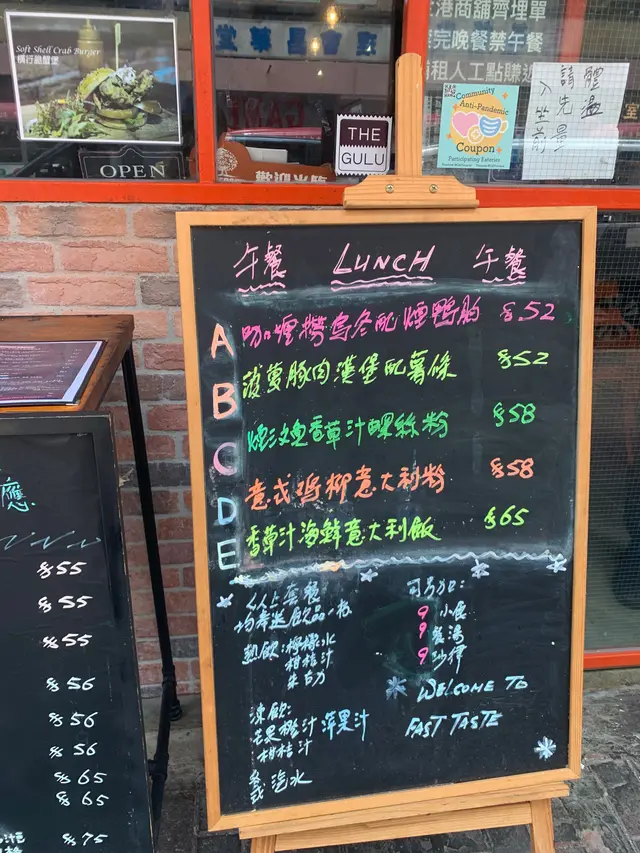 Soft Shell Crab Burger
橫行脆蟹堡
OPEN
THE
GULU
歡迎光臨
Community
Anti-Pandemic
Coupon
Participating Eateries
請先量
體溫
入坐前
港商舖齊埋單
完晚餐禁午餐
租人工點賺這
午餐 LUNCH 午餐
A 咖喱撈烏冬配煙鴨胸 $52
B 菠蘿豚肉漢堡配薯條 $52
C 煙三文魚香草汁螺絲粉 $58
D 意式鸡柳意大利粉 $58
E 香草汁海鮮意大利飯 $65
以上套餐
均奉送飲品一杯
熱飲:檸檬水
柑桔汁
朱古力
凍飲:
芒果橙汁 萍果汁
柑桔汁
各式汽水
可另配:
9 小食
9 餐湯
9 沙律
WELCOME TO
FAST TASTE
應
$55
$55
$55
$56
$56
$56
$65
$65
$75